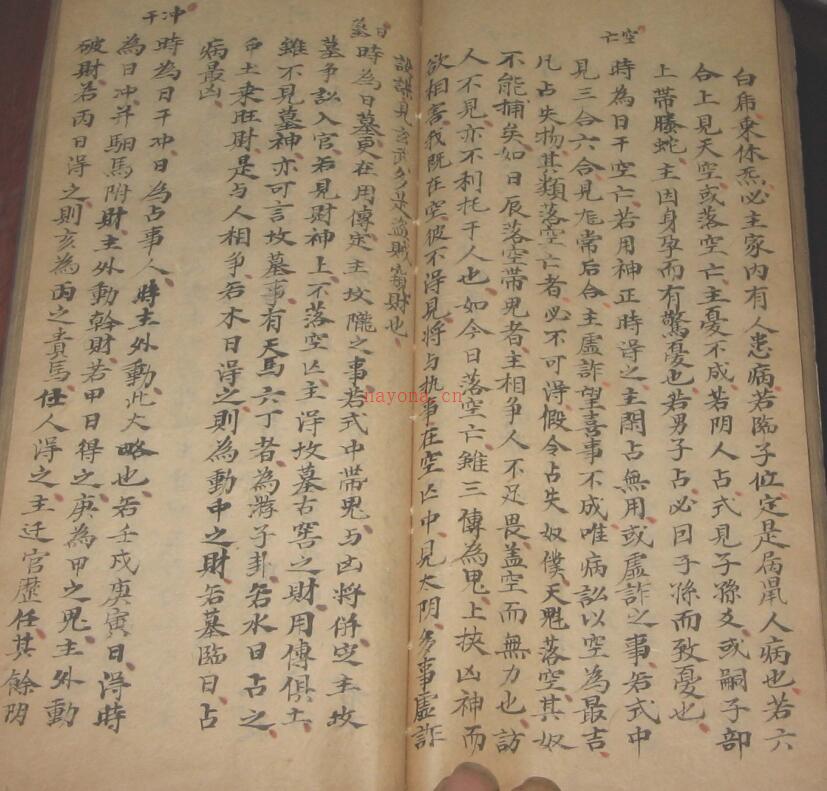 白虎乘休炁必主家內有人患病若臨子位定是屬鼠人病也若六
合上見天空或落空亡主憂不成若阴人占式見子孫爻或嗣子部
上帶螣蛇主因身孕而有驚憂也若男子占必因子孫而致憂也
空亡
時為日干空亡若用神正時得之主閑占無用或虛詐之事若式中
見三合六合見龙常后合主虛詐望喜事不成唯病訟以空為最吉
凡占失物其類落空亡者必不可得假令占失奴僕天魁落空其奴
不能捕矣如日辰落空帶鬼者主相爭人不足畏盖空而無力也訪
人不見亦不利托于人也如今日落空亡雖三傳為鬼上挾凶神而
欲相害我既在空彼不得見將与执事在空亡中見太阴多事虛詐
見玄武多米盜賊竊財也
日墓
時為日墓更在用傳定主坟隴之事若式中帶鬼与凶將併定主坟
墓爭訟入官若見財神上不落空亡主得坟墓古窖之財用傳俱土
雖不見墓神亦可言坟墓事有天馬六丁者為游子卦若水日占之
土乘旺尉是与人相爭若木日得之則為動中之財若墓臨日占
病最凶
冲干
時為日干冲日為占事人時主外動此大略也若壬戌庚寅日得時
為日冲并駟馬附財主外動幹財若甲日得之庚為甲之鬼主外動
破財若丙日得之則亥為丙之貴馬任人得之主迁官歷任其餘阴
nayona.cn